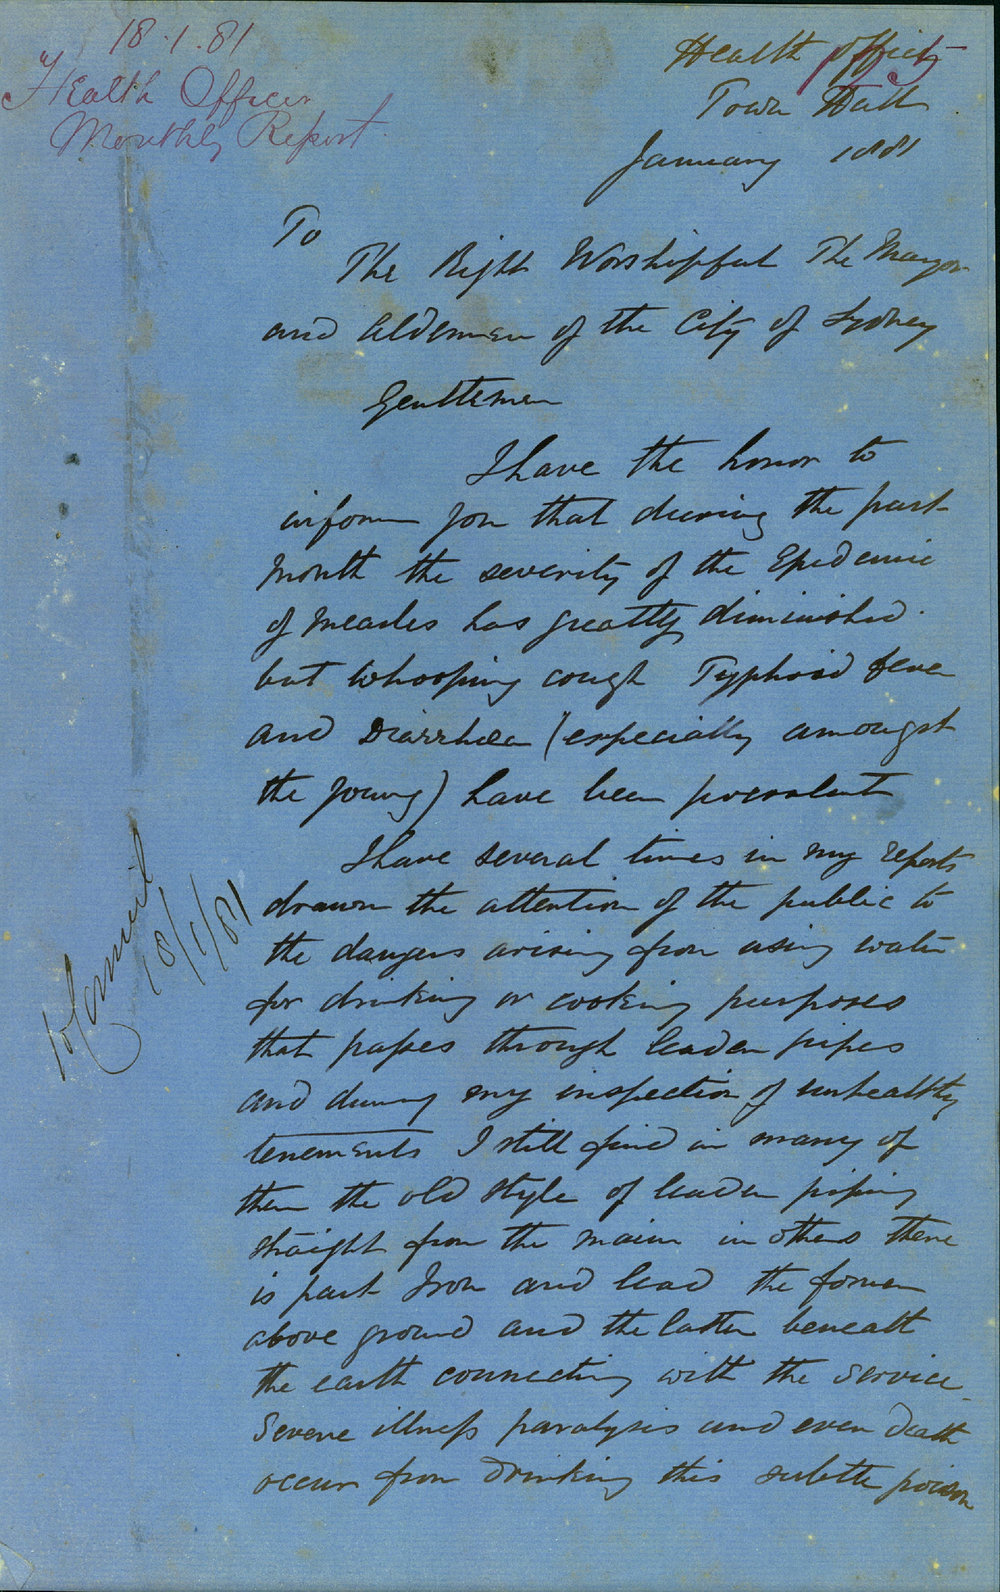 18.1.81
Health Officer
Monthly Report
Health Office
Town Hall
January 1881
To
The Right Worshipful The Mayor
and Aldermen of the City of Sydney
Gentlemen
I have the honor to
inform you that during the past
Month the severity of the Epidemic
of Measles has greatly diminished
but Whooping cough Typhoid fever
and Diarrhœa (especially amongst
the young) have been prevalent
I have several times in my reports
drawn the attention of the public to
the dangers arising from using water
for drinking or cooking purposes
that passes through leaden pipes
and during my inspection of unhealthy
tenements I still find in many of
them the old style of leaden piping
straight from the main in others there
is part Iron and lead the former
above ground and the latter beneath
the earth connecting with the service
Severe illness paralysis and even death
occur from drinking this subtle poison
18/1/81